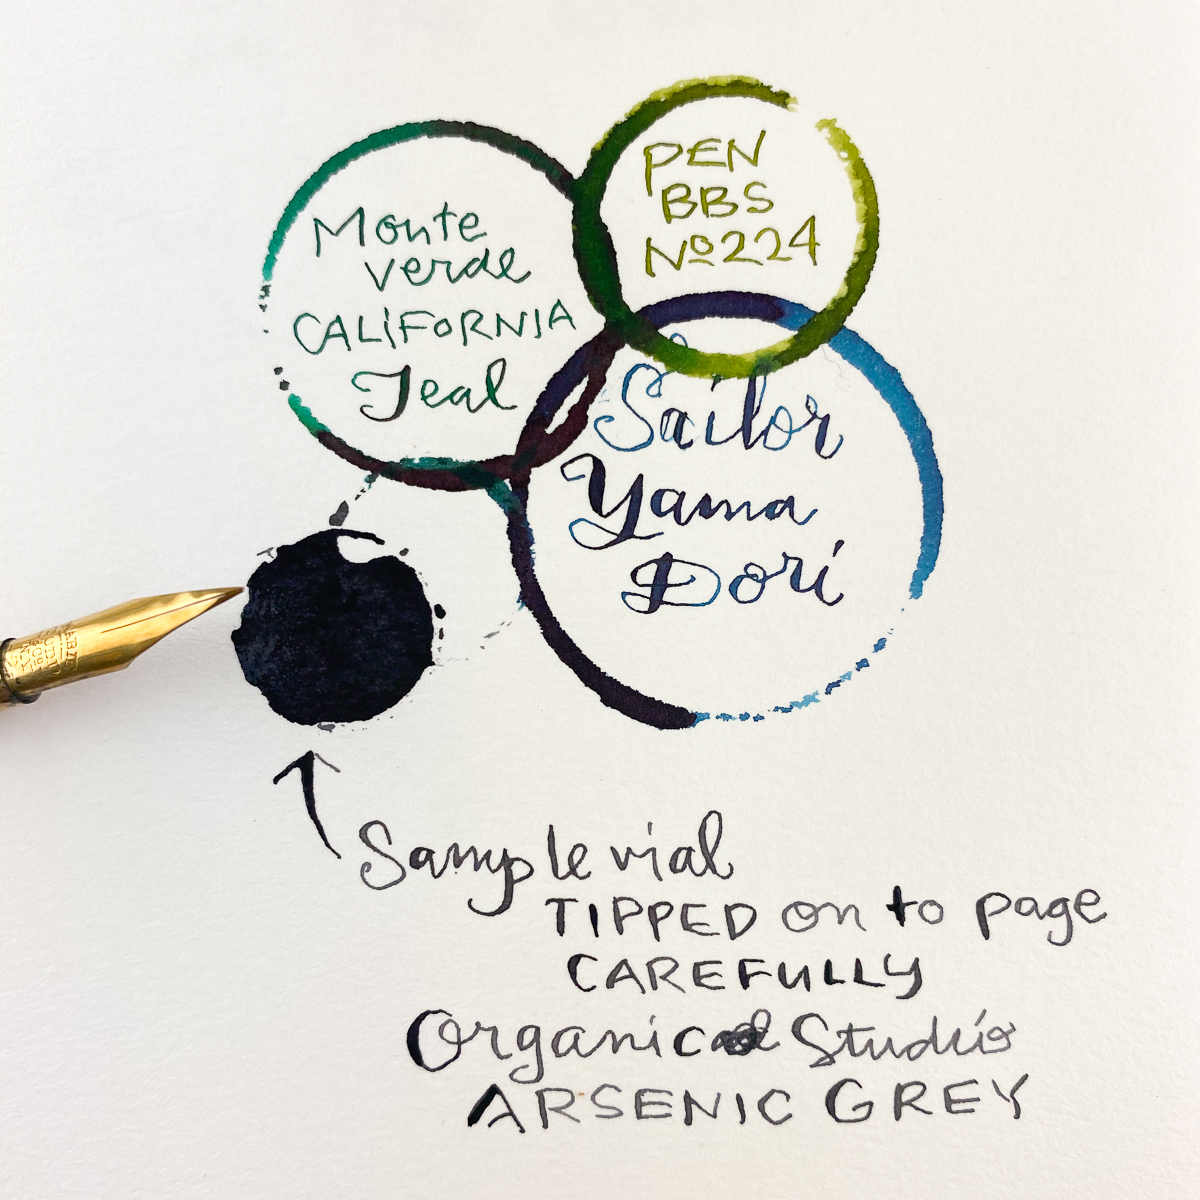 Monte
verde
CALiFORNIA
Teal
PEN
BBS
No224
Sailor
Yama
Dori
Sample vial
TIPPED on to page
CAREFULLY
Organic Studio
ARSENIC GREY